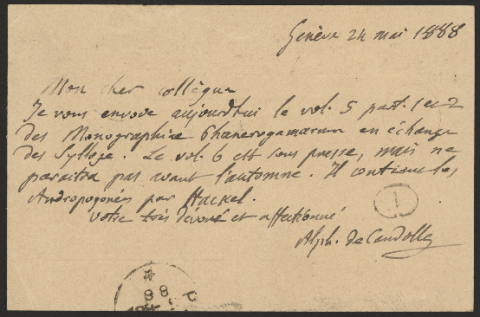 Genève 24 mai 1888
Mon cher collègue
Je vous envoie aujourdhui le vol. 5 part. 1 et 2
des Monographiæ Phanerogamarum en échange
des Sylloge. Le vol. 6 est sous presse, mais ne
paraitra pas avant l'automne. Il contient les
Andropogonés par Hackel.
Votre très dévoué et affectionné
Alph. de Candolle
1
88